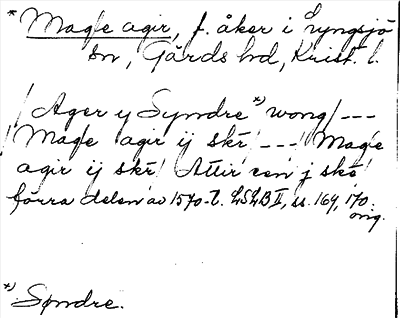 * Magle agir, f. åker i Lyngsjö
sn, Gärds hd, Krist. l.
/ Ager y Syndre *) wong / ---
/ Magle agir ij skr / --- / Magle
agir ij skr / Attir een j skr /
förra delen av 1570-t. LSLB II, ss. 169, 170.
orig.
*) Søndre.